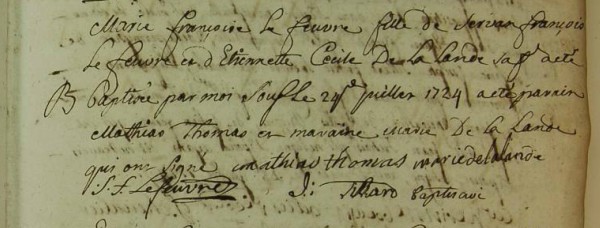 Marie françoise Le feuvre fille de Servan françois
Le feuvre et d'Etiennette Cecile De La Lande sa f^e a eté
B Baptisée par moi Sous. Le 24^e Juillet 1724 a eté parain
Mathias Thomas et maraine Marie De La Lande
qui ont signé mathias thomas marie delalande
S. F. Lefeuvre J: Tillard baptisavi